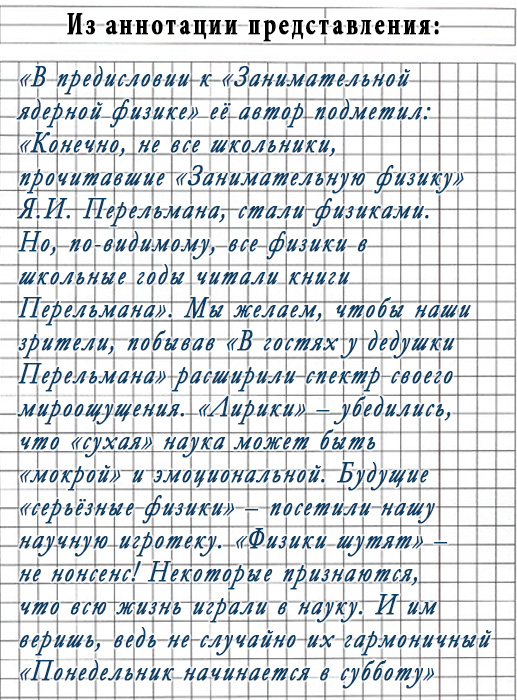 Из аннотации представления:
«В предисловии к «Занимательной
ядерной физике» её автор подметил:
«Конечно, не все школьники,
прочитавшие «Занимательную физику»
Я.И. Перельмана, стали физиками.
Но, по-видимому, все физики в
школьные годы читали книги
Перельмана». Мы желаем, чтобы наши
зрители, побывав «В гостях у дедушки
Перельмана» расширили спектр своего
мироощущения. «Лирики» – убедились,
что «сухая» наука может быть
«мокрой» и эмоциональной. Будущие
«серьёзные физики» – посетили нашу
научную игротеку. «Физики шутят» –
не нонсенс! Некоторые признаются,
что всю жизнь играли в науку. И им
веришь, ведь не случайно их гармоничный
«Понедельник начинается в субботу»